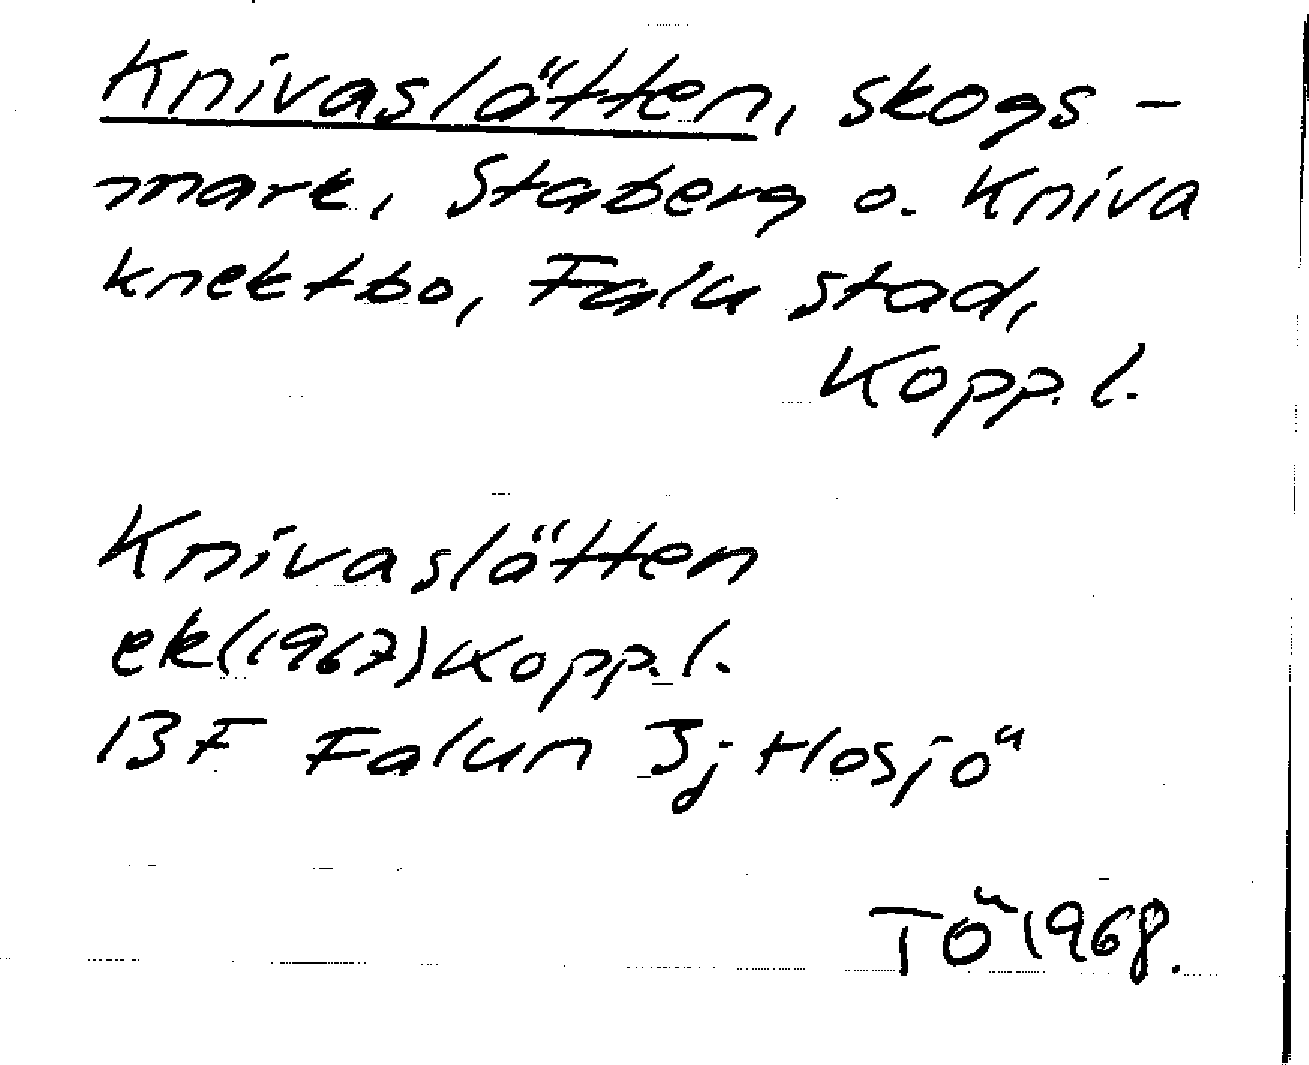 Knivaslåtten, skogs-
mark, Staberg o. Kniva
knektbo, Falu stad,
Kopp. l.
Knivaslåtten
ek (1967) Kopp. l.
13F Falun 3j Hosjö
TÖ 1968.